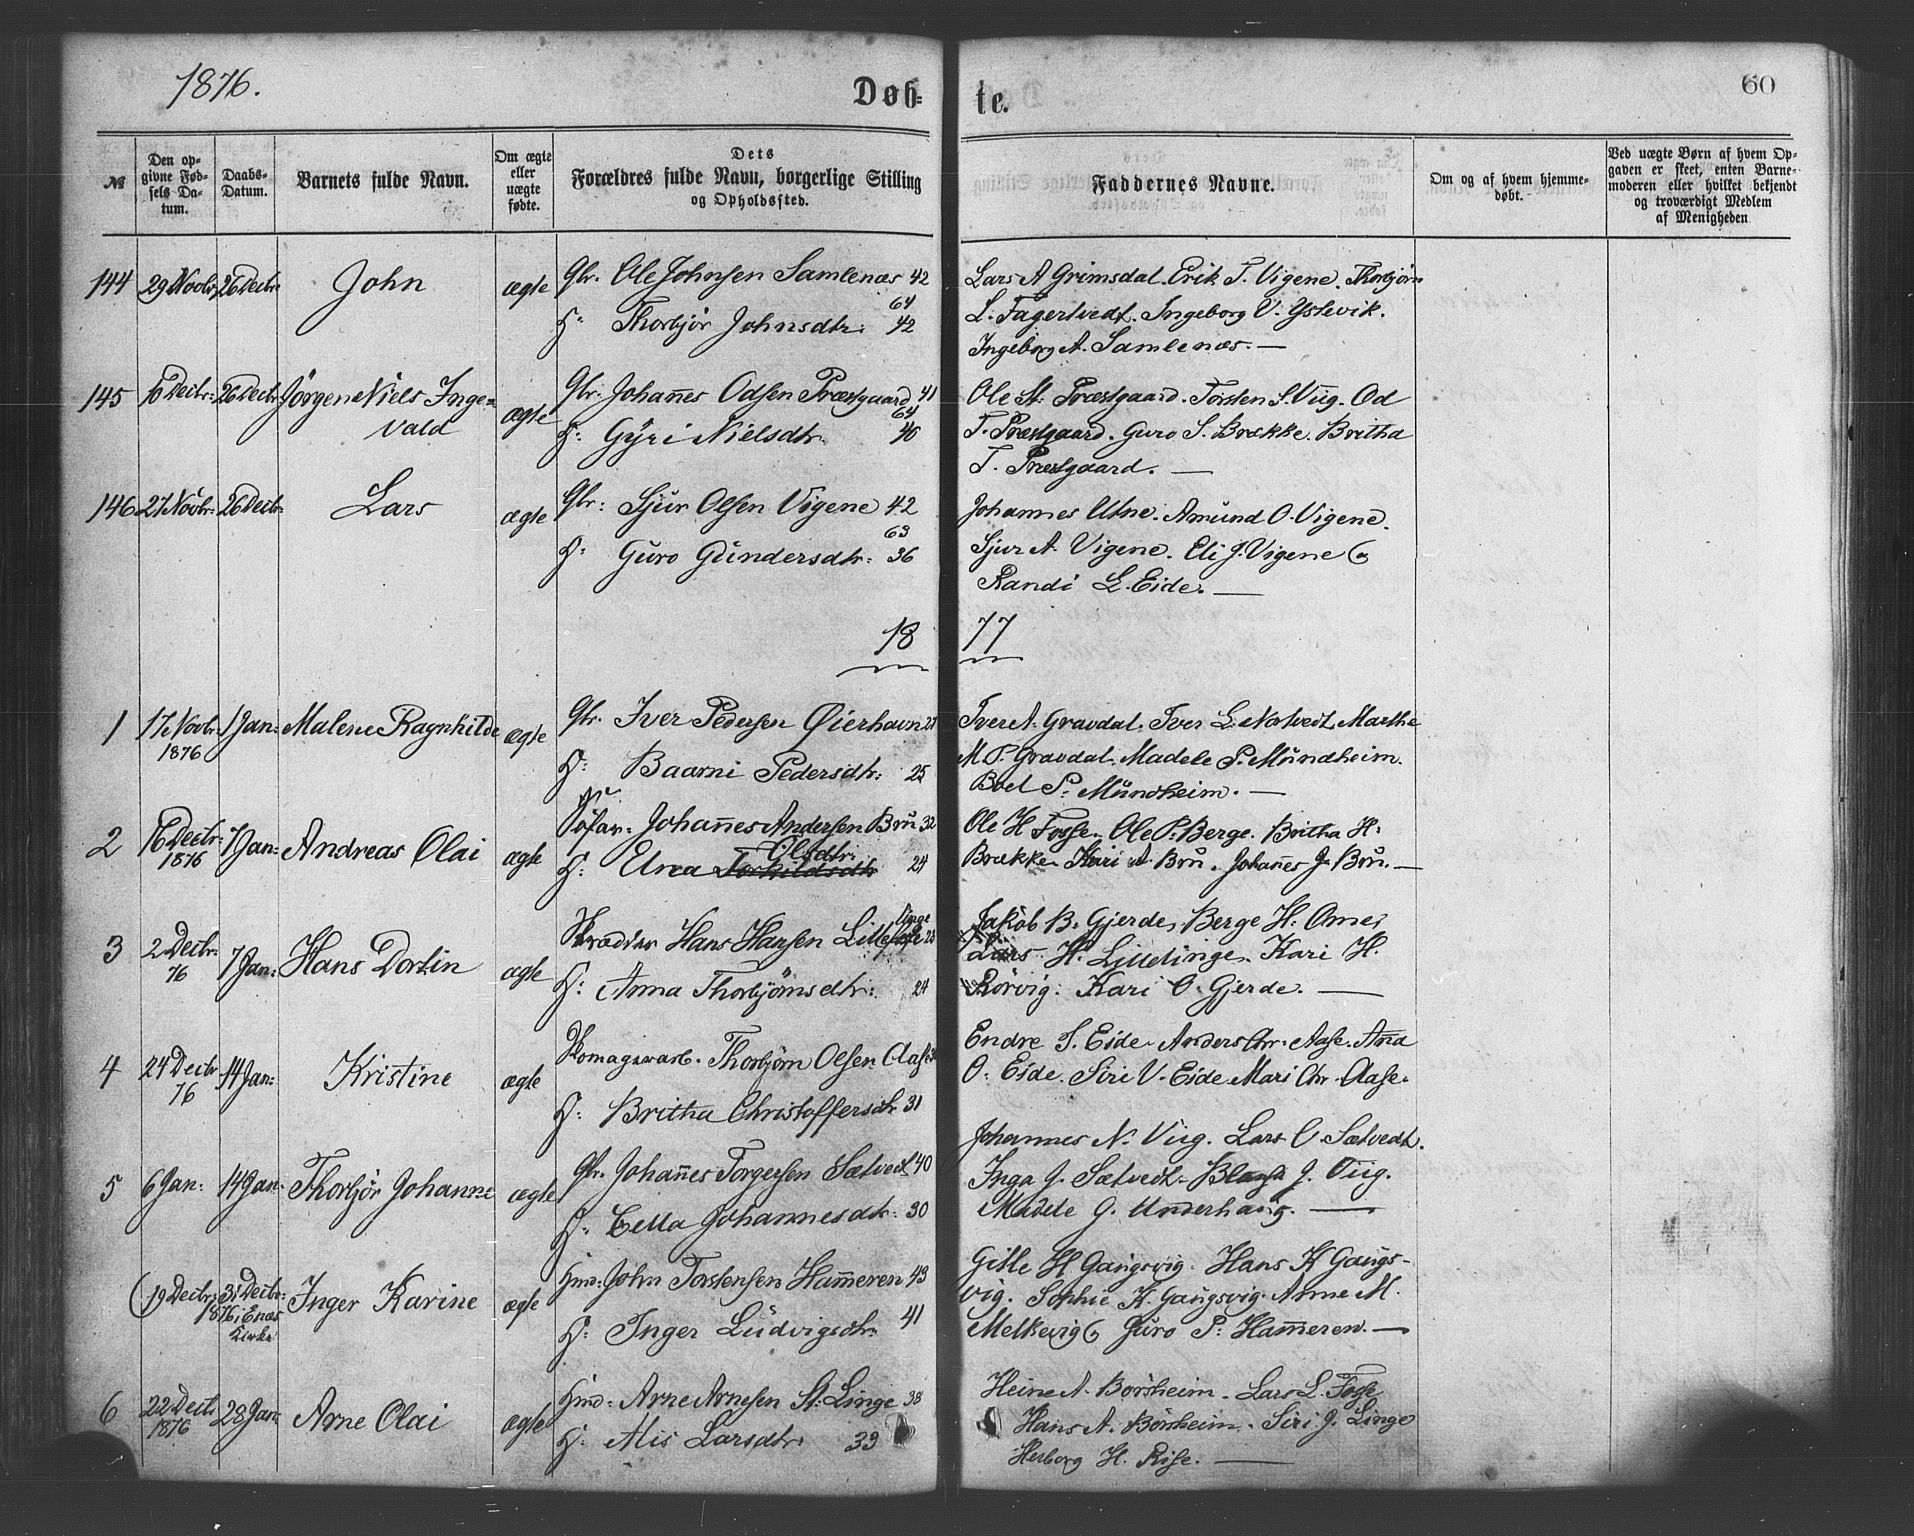 1876.
Døb-
te.
60
№
Den op-
givne Fød-
sels Da-
tum.
Daabs-
Datum.
Barnets fulde Navn.
Om ægte
eller
uægte
fødte.
Dets
Forældres fulde Navn, borgerlige Stilling
og Opholdssted.
Faddernes Navne.
Om og af hvem hjemme-
døbt.
Ved uægte Børn af hvem Op-
gaven er skeet, enten Barne-
moderen eller hvilket bekjendt
og troværdigt Medlem
af Menigheden
144 29 Novbr. 26 Decbr. John ægte Gbr. Ole Johnsen Samlenæs 42
64
H: Thorbjør Johnsdtr. 42
Lars A Grimsdal. Erik T. Vigene. Thorbjørn
L. Fagertvedt. Ingeborg V. Ystevik.
Ingeborg A. Samlenæs. —
145 6 Decbr: 26 Decbr Jörgen Niels Inge= ægte Gbr. Johañes Odsen Præstgaard 41
vald
64
H: Gyri Nielsdtr. 40
Ole N: Præstgaard. Torsten S. Viig. Od
T. Præstgaard. Guro S. Brække. Britha
T. Præstgaard. —
146 27 Novbr. 26 Decbr. Lars ægte Gbr: Sjur Olsen Vigene 42
63
H: Guro Gundersdtr: 36
Johannes Utne. Amund O. Vigene.
Sjur A. Vigene. Eli J. Vigene &
Randi L. Eide. —
18
77
1 17 Novbr. 1 Jan: Malene Ragnhilde ægte Gbr. Iver Pedersen Øierhavn 28
1876
H: Baarni Pedersdtr: 25
Iver A. Gravdal. Iver L. Nortvedt. Marthe
M. P. Gravdal. Madele P. Mundheim.
Boel P. Mundheim. —
2 16 Decbr. 7 Jan: Andreas Olai ægte Johañes Andersen Bru 32
1876
Olsdtr.
H: Elna Torkildsdtr 24
Ole H Fosse. Ole P. Berge. Britha H:
Brække. Kari A. Bru. Johañes J. Bru. —
3 2 Decbr. 7 Jan: Hans Dortin ægte Skrædder Hans Hansen Lille 28
76
linge
H: Anna Thorbjörnsdtr: 24
Jakob B. Gjerde, Berge H. Omes
Lars H. Lillelinge. Kari H.
Rörvig. Kari O. Gjerde. —
4 24 Decbr 14 Jan: Kristine ægte Skomagersarb. Thorbjörn Olsen Aase
76
H: Britha Christoffersdtr 31
Endre S. Eide. Anders Chr. Aase. Ana
O. Eide. Siri V. Eide. Mari Chr. Aase.
5 6 Jan: 14 Jan: Thorbjør Johanne ægte Gbr. Johañes Torgersen Sætvedt 40
H: Cella Johannesdtr. 30
Johannes N. Viig. Lars O. Sætvedt.
Inga J. Sætvedt. J. Viig.
Madele G. Underhaug. —
(19 Decbr. 31 Decbr. Inger Karine ægte Hmd. John Torstensen Hameren 43
1876 i Enæs
Kirke
H: Inger Ludvigsdtr. 41
Gitle H Gangsvig. Hans K Gaugs-
vig. Sophie K. Gaugsvig. Anne M.
Melkevig & Guro P: Hameren. —
6 22 Decb. 28 Jan: Arne Olai ægte Hmd. Arne Arnesen St. Linge 38
1876
H: Mis Larsdtr. 33
Heine A. Borsheim. Lars L. Fosse
Hans A. Börsheim. Siri J. Linge
Herborg H. Rise. —